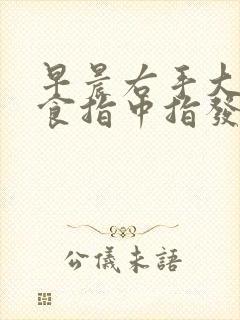 早晨右手大
食指中指發
公儀未語